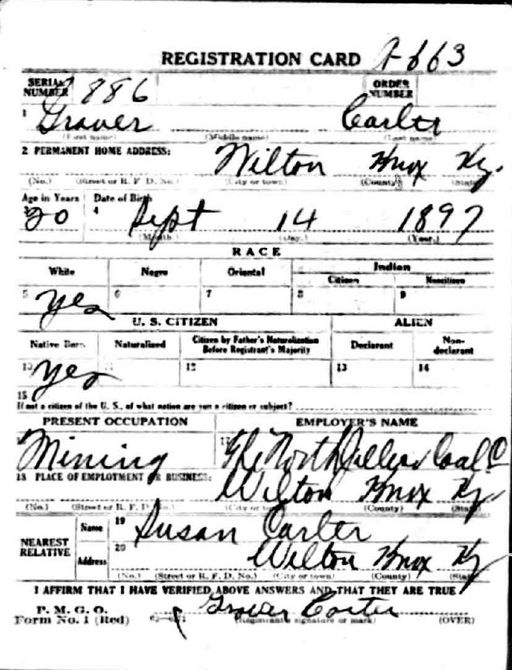 REGISTRATION CARD A-663
SERIAL NUMBER 886 ORDER NUMBER
1 Grover Carter
(First name) (Middle name) (Last name)
2 PERMANENT HOME ADDRESS: Wilton Knox Ky.
(No.) (Street or R. F. D. No.) (City or town) (County) (State)
Age in Years Date of Birth
20 4 Sept 14 1897
(Month.) (Day.) (Year.)
RACE
White Negro Oriental Indian
Citizen Noncitizen
5 Yes 6 7 8 9
U. S. CITIZEN ALIEN
Native Born Naturalized Citizen by Father's Naturalization Before Registrant's Majority Declarant Non-declarant
10 Yes 11 12 13 14
15
If not a citizen of the U. S., of what nation are you a citizen or subject?
PRESENT OCCUPATION EMPLOYER'S NAME
Mining 17 Coal Co
18 PLACE OF EMPLOYMENT OR BUSINESS: Wilton Knox Ky.
(No.) (Street or R. F. D. No.) (City or town) (County) (State)
NEAREST RELATIVE Name 19 Susan Carter
Address 20 Wilton Knox Ky
(No.) (Street or R. F. D. No.) (City or town) (County) (State)
I AFFIRM THAT I HAVE VERIFIED ABOVE ANSWERS AND THAT THEY ARE TRUE
P. M. G. O.
Form No. 1 (Red) Grover Carter
(Registrant's signature or mark) (OVER)